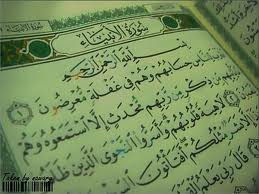 سُورَةُ الأَنبِيَاءِ
سُورَةُ الأَنبِيَاءِ
بِسْمِ اللَّهِ الرَّحْمَٰنِ الرَّحِيمِ
لِلنَّاسِ حِسَابُهُمْ وَهُمْ فِي غَفْلَةٍ مُّعْرِضُونَ ١
ذِكْرٍ مِّن رَّبِّهِم مُّحْدَثٍ إِلَّا اسْتَمَعُوهُ وَهُمْ
لَاهِيَةً قُلُوبُهُمْ وَأَسَرُّوا النَّجْوَى الَّذِينَ ظَلَمُوا
بَشَرٌ مِّثْلُكُمْ أَفَتَأْتُونَ
قَالَ رَبِّي يَعْلَمُ
Taken by